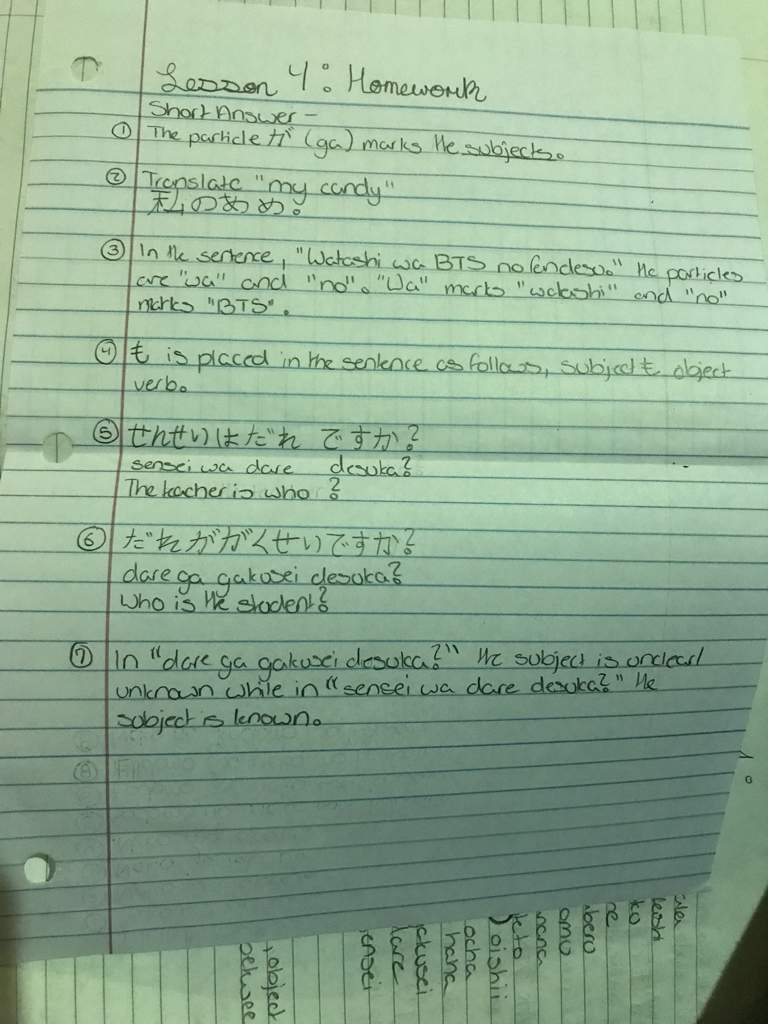 Lesson 4: Homework
Short Answer -
① The particle が (ga) marks the subjects.
② Translate "my candy"
私のあめ。
③ In the sentence, "Watashi wa BTS no fan desu." the particles
are "wa" and "no". "Wa" marks "watashi" and "no"
marks "BTS".
④ も is placed in the sentence as follows, subject も object
verb.
⑤ せんせいはだれ ですか?
sensei wa dare desuka?
The teacher is who ?
⑥ だれががくせいですか?
dare ga gakusei desuka?
who is the student?
⑦ In "dare ga gakusei desuka?" the subject is unclear/
unknown while in "sensei wa dare desuka?" the
subject is known.
⑧
oishii
ocha
hana
gakusei
dare
sensei
+object